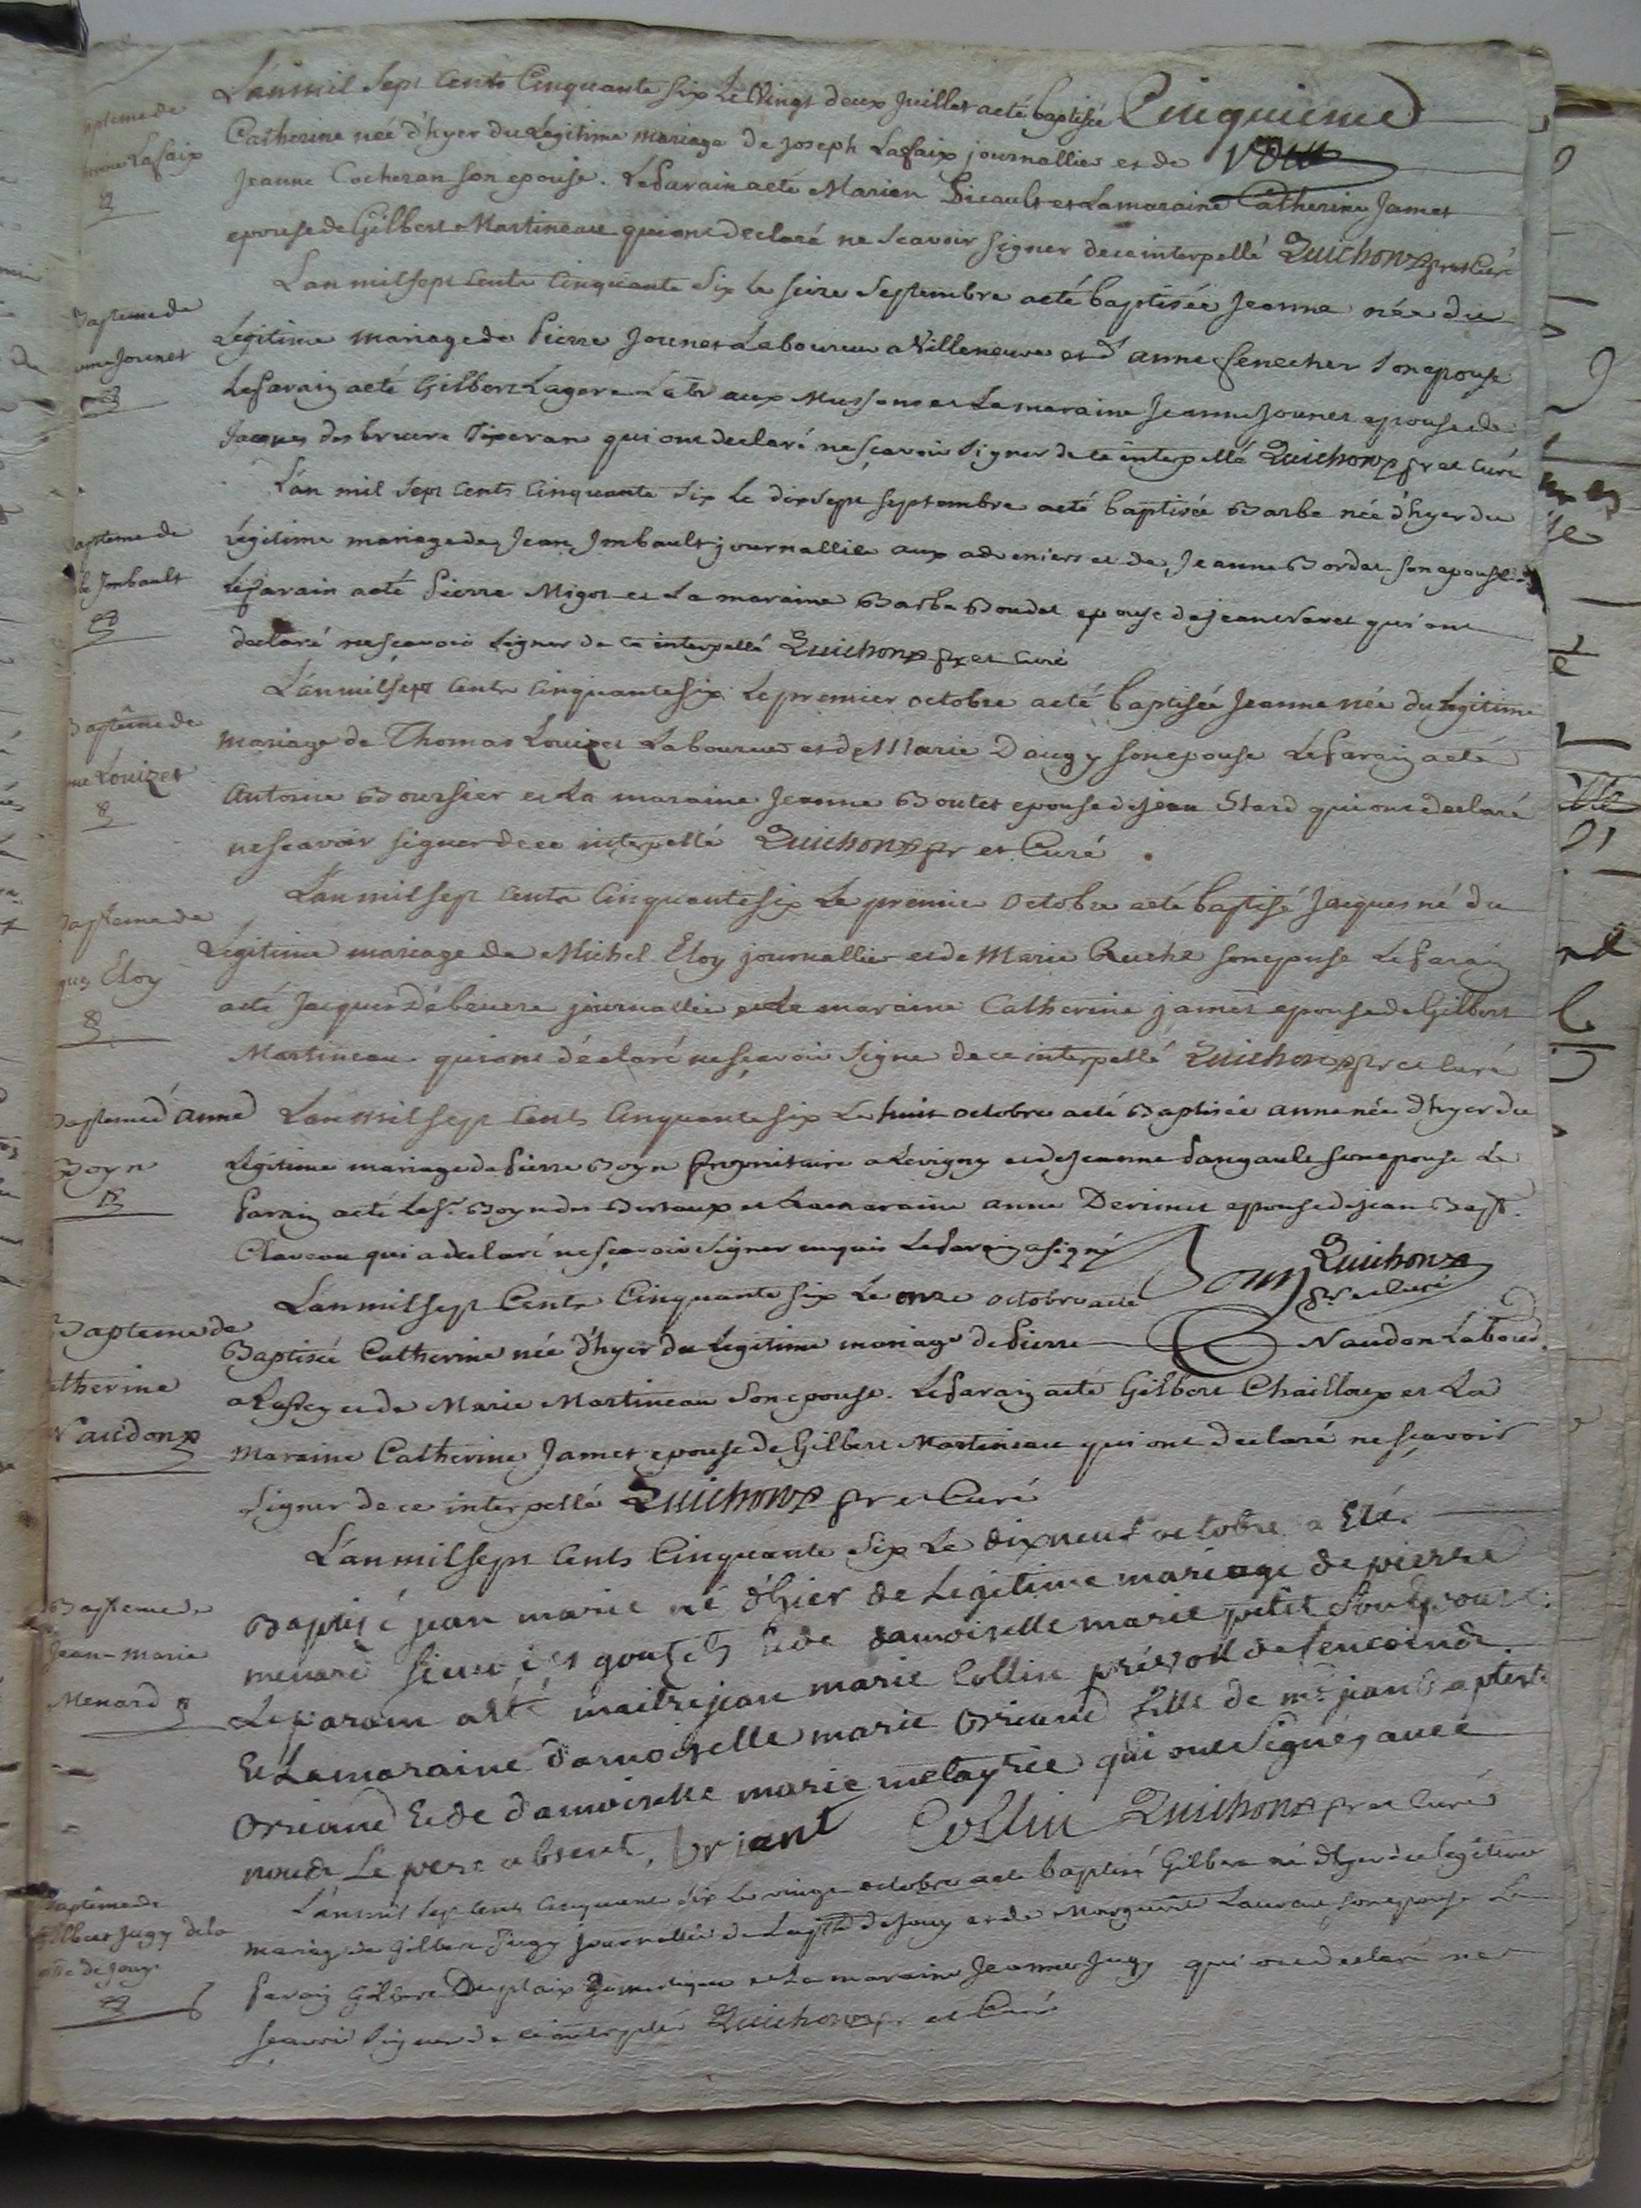 L'an mil Sept Cents Cinquante Six Le Vingt deux Juillet acté baptisée Cinquieme
Catherine née d'hyer du Légitime mariage de joseph Lafaix journallier et de
Jeanne Cocheran son epouse. Le Parain acté Marien Picault et La maraine Catherine Jamet
epouse de Gilbert Martineau qui ont declaré ne Scavoir Signer de ce interpellé Quichon pr et Curé
Lafaix
L'an mil sept Cents Cinquante Six Le seize Septembre acté baptisée Jeanne née du
Légitime mariage de Pierre Jounet Laboureur a Villeneuve et d' anne Senecher son epouse
Le Parain acté Gilbert Lagere Labr aux Mussons et La maraine Jeanne Jounet epouse de
Jacques des bruere qui ont declaré ne sçavoir Signer de ce interpellé Quichon pr et Curé
Baptême de
Jounet
L'an mil Sept Cents Cinquante Six Le dix Sept Septembre acté baptisée Barbe née d'hyer du
Légitime mariage de Jean Jmbault journallier aux et de Jeanne Bordat son epouse
Le Parain acté Pierre Migot et La maraine Barbe Boudet epouse de jean Navet qui ont
declaré ne sçavoir Signer de ce interpellé Quichon pr et Curé
baptême de
be Jmbault
L'an mil Sept Cents Cinquante Six Le premier octobre acté baptisée Jeanne née du Légitime
mariage de Thomas Louizet Laboureur et de Marie Daugy son epouse Le Parain acté
Antoine Boursier et La maraine Jeanne Boutet epouse de jean Stard qui ont declaré
ne scavoir signer de ce interpellé Quichon pr et Curé .
Baptême de
Louizet
L'an mil Sept Cents Cinquante Six Le premier Octobre acté baptisé Jacques né du
Légitime mariage de Michel Eloy journallier et de Marie son epouse Le Parain
acté Jacques Débeuere journallier et La maraine Catherine jamet epouse de Gilbert
Martineau qui ont déclaré ne sçavoir Signe de ce interpellé Quichon pr et Curé
Baptême de
Eloy
Baptême d'anne
Boyn
L'an mil Sept Cents Cinquante Six Le huit octobre acté Baptisée anne née d'hyer du
Légitime mariage de Pierre Boyn Proprietaire a Levigny et de Jeanne Dangault son epouse Le
Parain acté Le Sr. Boyn des Bersaux et La maraine anne Derimet epouse de Jean Bapt.
Claveau qui a declaré ne sçavoir Signer enquis Le Parain a signé
Boyn Quichon
pr et Curé
Baptême de
atherine
Naudon
L'an mil Sept Cents Cinquante Six Le onze octobre acté
Baptisée Catherine née d'hyer du Legitime mariage de Pierre Naudon Labour.
a et de Marie Martineau Son epouse. Le Parain acté Gilbert Chailloux et La
maraine Catherine Jamet epouse de Gilbert Martineau qui ont declaré ne sçavoir
Signer de ce interpellé Quichon pr et Curé
Baptême de
Jean-Marie
Menard
L'an mil Sept Cents Cinquante Six Le dix neuf octobre a Eté
Baptisé jean marie né d'hier de Legitime mariage de pierre
menard Sieur Et de damoiselle marie petit Son Epouse
Le parain a Eté maitre jean marie Collin
Et La maraine damoiselle marie Oriand fille de me jean baptiste
Oriand Et de damoiselle marie qui ont Signés avec
nous Le pere absent, Briant Collin Quichon pr et Curé
Baptême de
Gilbert Jugy de la
de Jouy
L'an mil Sept Cents Cinquante Six Le vingt octobre acté baptisé Gilbert né d'hyer de Legitime
mariage de Gilbert Jugy journallier de de Jouy et de Marguerite Laurent son epouse Le
Parain Gilbert Duplaix domestique et La maraine Jeanne Jugy qui ont declaré ne
Sçavoir Signer de ce interpellé Quichon pr et Curé